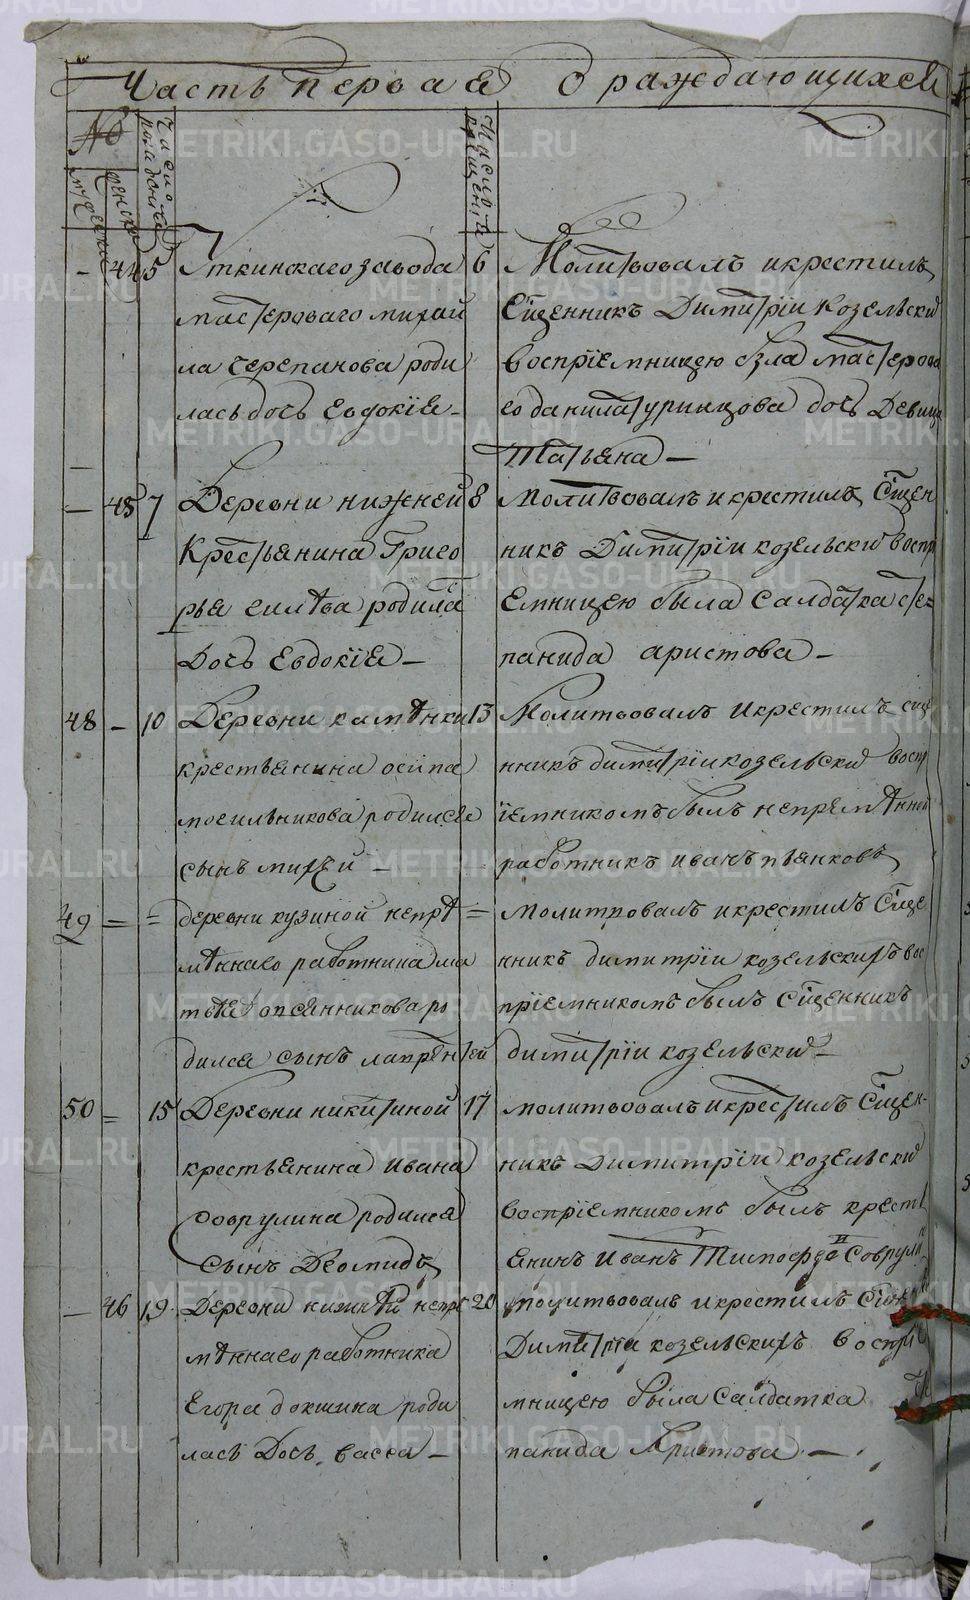 Часть первая О раждающихся
№
мужеска
женска
число рождения
Число крещения
- 44 5 Уткинскаго завода
мастероваго михай
ла Черепанова роди
лась дочь Евдокiя -
6 Молитвовалъ и крестилъ
Сщенникъ Димитрiи Козельски
воспрiемницею была мастерова
го данила туринцова дочь Девица
Татьяна -
- 45 7 Деревни нижней
Крестьянина Григо
рья силѣва родила
Дочь Евдокiя -
8 Молитвовалъ и крестилъ Сщен
никъ Димитрiи козельски воспр
емницею была Салдатка сте
панида аристова -
48 - 10 Деревни камѣнки
крестьянина осипа
мосильникова родился
сынъ михей -
13 Молитвовалъ и крестилъ сще
нникъ димитрiи козельски воспр
iемникомъ былъ непремѣнной
работникъ иванъ пьянковъ
49 = = деревни кузиной непрѣ
мѣннаго работника ма
твѣя опсянникова ро
дился сынъ лаврентей
= молитвовалъ и крестилъ Сще
нникъ димитрiи козельскихъ вос
прiемникомъ былъ Сщенникъ
димитрiи козельски -
50 = 15 Деревни никитиной
крестьянина ивана
Соврулина родился
Сынъ Диомидъ
17 молитвовалъ и крестилъ Сщен-
никъ Димитрiи козельски
воспрiемникомъ былъ крестъ
янинъ Иванъ Тимофѣевъ Соврулин
- 46 19. Деревни нижнѣй непре
мѣннаго работника
Егора докшина роди
лась Дочь васса -
20 молитвовалъ и крестилъ Сщен
Димитрiи козельскихъ воспрiе
мницею была Салдатка сте
панида Аристова -
METRIKI.GASO-URAL.RU